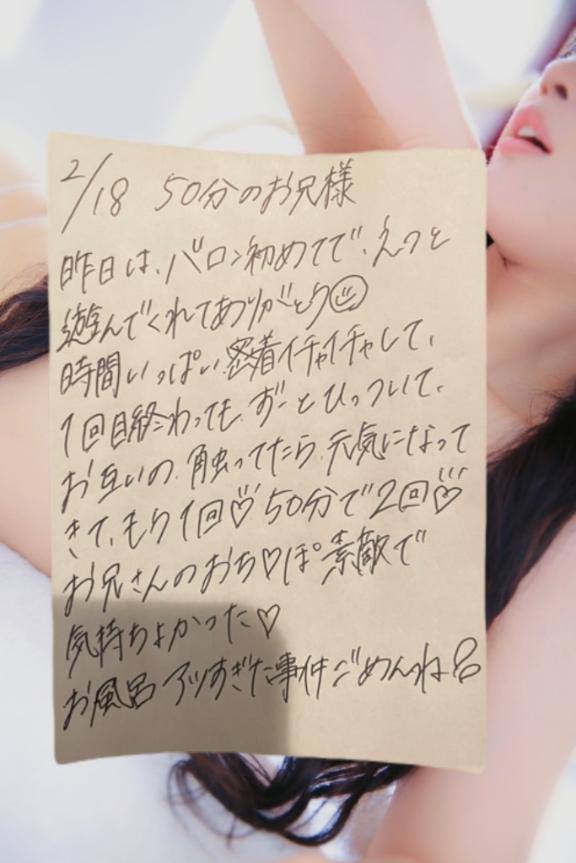 2/18 50分のお兄様
昨日は、バロン初めてで、えっと
遊んでくれてありがとう
時間いっぱい密着イチャイチャして、
1回目終わっても、ずーとひっついて、
お互いの、触ってたら、元気になって
きて、もう1回♡ 50分で2回♡
お兄さんのおち♡ぽ素敵で
気持ちよかった♡
お風呂アツすぎた事件ごめんね